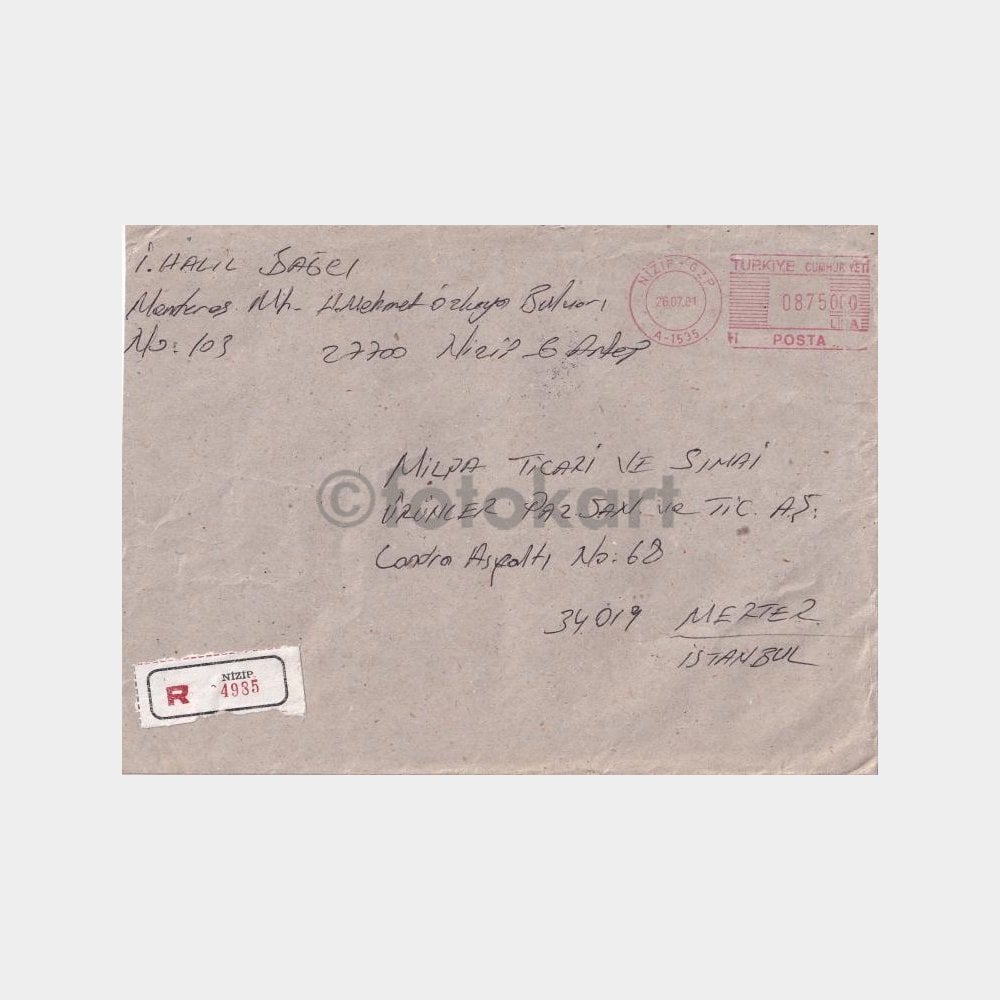 İ. HALİL BAĞCI
Menderes Mh. H.Mehmet Özkaya Bulvarı
No: 103 27700 Nizip G Antep
NİZİP-GZP
26.07.01
A-1535
TÜRKİYE CUMHURİYETİ
0875000
LİRA
POSTA
©fotokart
MİLPA TİCARİ VE SINAİ
ÜRÜNLER PAZ. SAN. VE TİC. A.Ş.
Londra Asfaltı No: 68
34.019 MERTER
İSTANBUL
NİZİP
R 4985